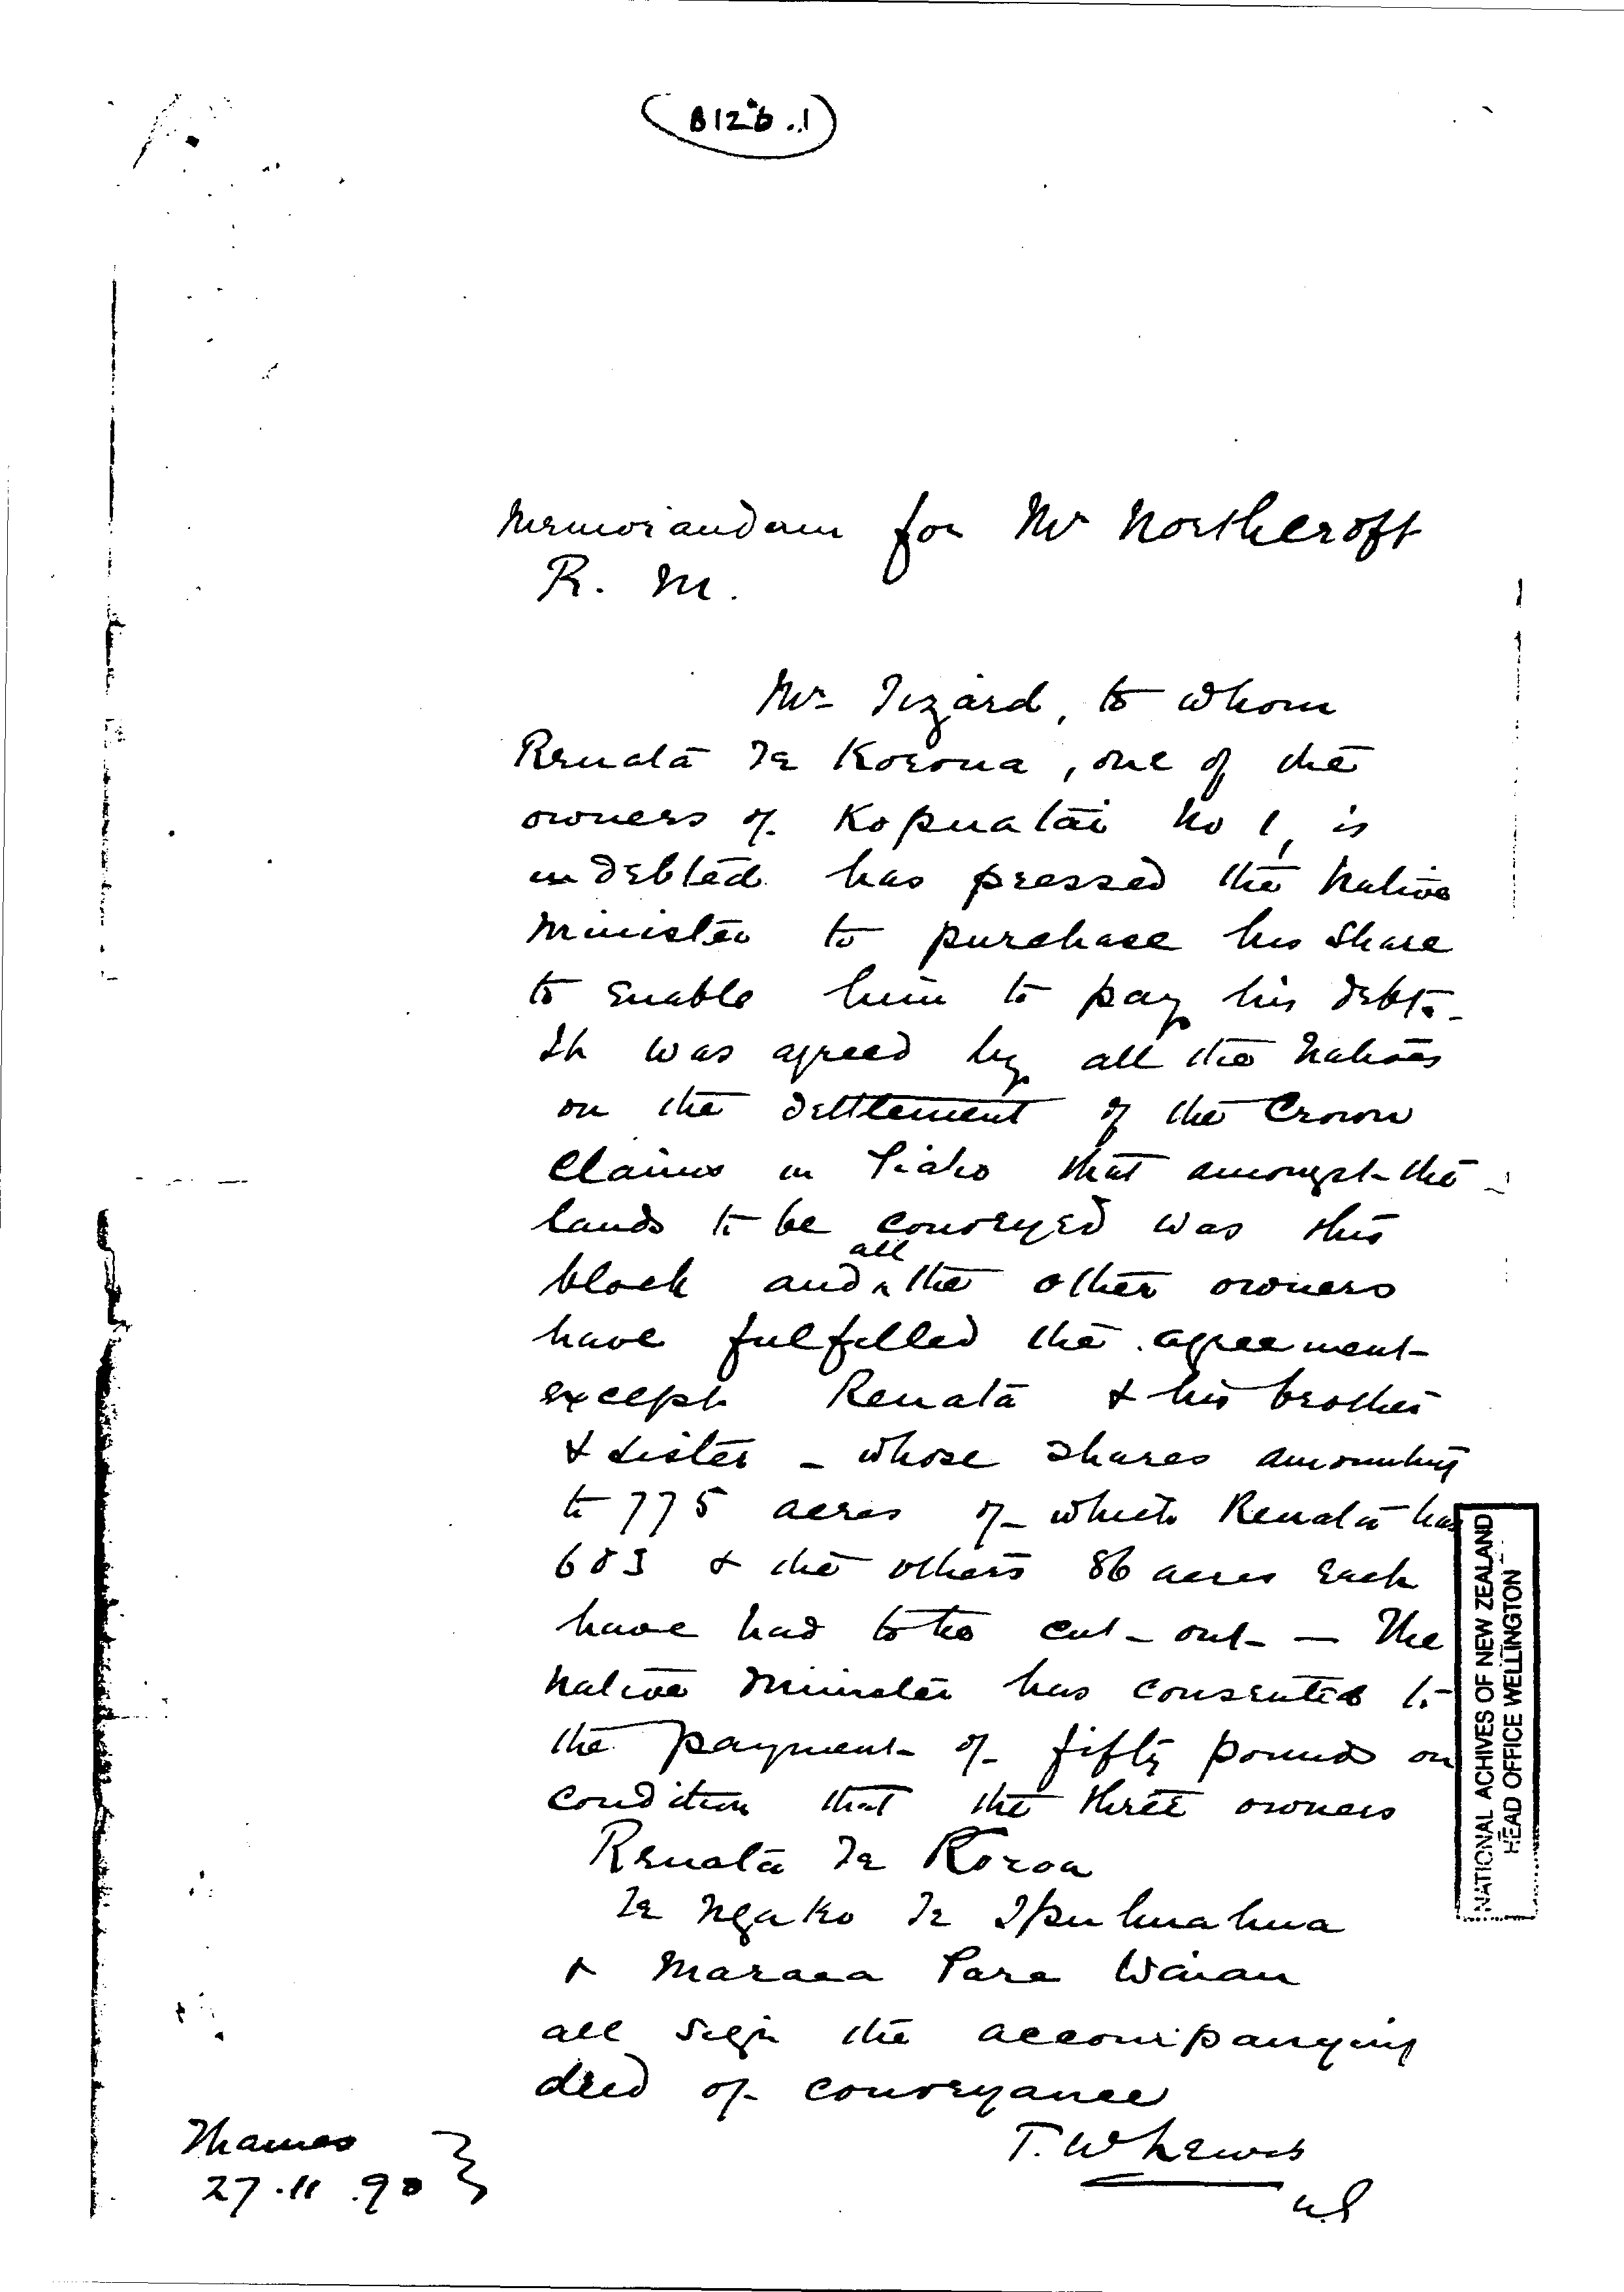 B126.1
Memorandum for Mr Northcroft
R. M.
Mr Tizard, to whom
Renata Te Korona, one of the
owners of Kopuatai No 1, is
indebted has pressed the Native
Minister to purchase his share
to enable him to pay his debts.
It was agreed by all the Natives
on the settlement of the Crown
Claims in Piako that amongst the
lands to be conveyed was this
block and all the other owners
have fulfilled the agreement
except Renata & his brother
& sister - whose shares amounting
to 775 acres of which Renata has
603 & the others 86 acres each
have had to be cut out — The
Native Minister has consented to
the payment of fifty pounds on
condition that the three owners
Renata Te Koroa
Te Ngako Te Ipuhuahua
& Maraea Para Waiau
all sign the accompanying
deed of conveyance
T. W Lewis
US
Thames
27.11.90
NATIONAL ACHIVES OF NEW ZEALAND
HEAD OFFICE WELLINGTON